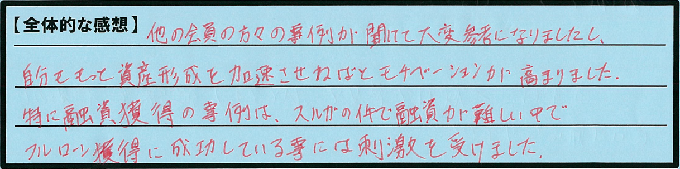 【全体的な感想】他の会員の方々の事例が聞けて大変参考になりましたし、
自分ももっと資産形成を加速させねばとモチベーションが高まりました。
特に融資獲得の事例は、スルガの件で融資が難しい中で
フルローン獲得に成功している事には刺激を受けました。